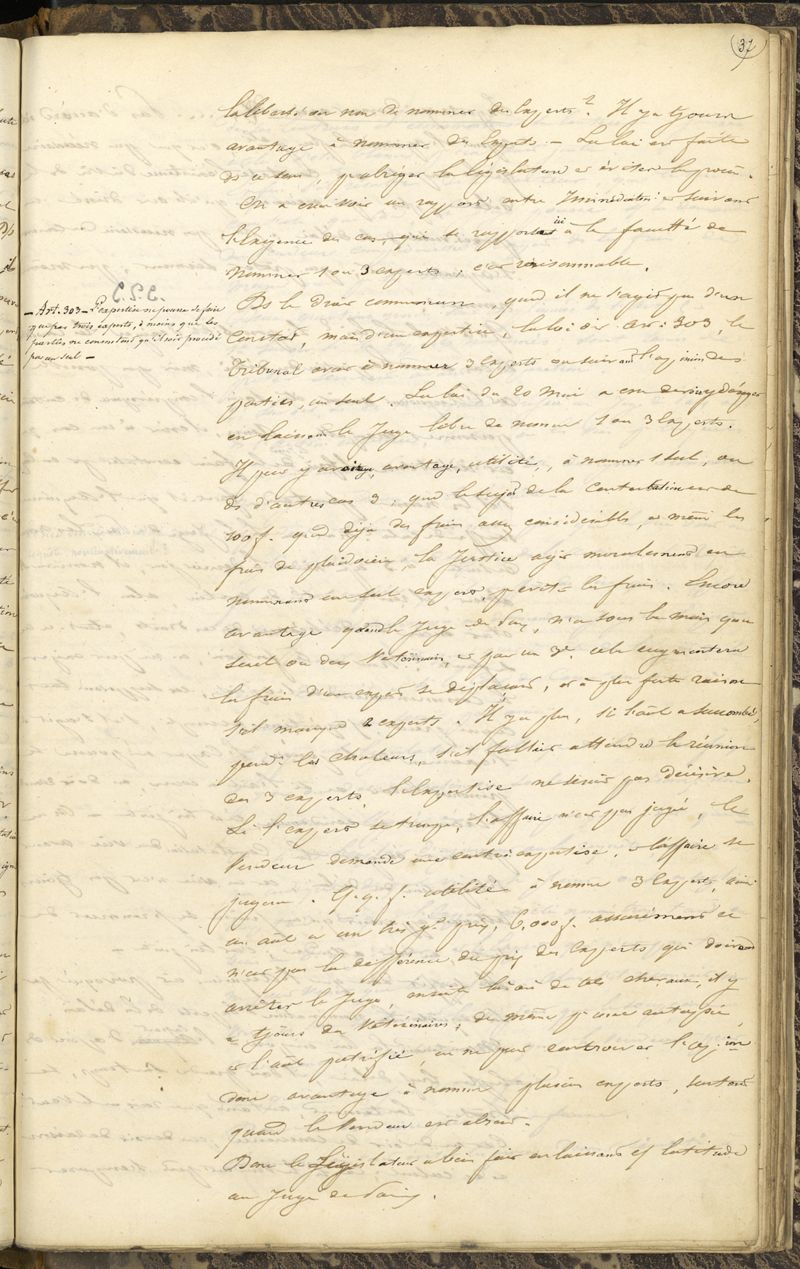 37
la liberté ou non de nommer des Experts ? Il y a tjours
avantage à nommer des Experts – La loi est faite
ds ce sens, p. abréger la législature et éviter le procès.
On a cru voir un rapport entre et suivant
l'Exigence des cas, qui se rapportait ici à la faculté de
nommer 1 ou 3 experts, c'est raisonnable.
Ds le Droit commun, quand il ne s'agit pas d'un
Constat, mais d'un expertise, la loi dit art : 303, le
Tribunal avait à nommer 3 Experts ou suivant l'opinion des
parties, un seul. La loi du 20 Mai a cru devoir y déroger
en laissant le Juge libre de nommer 1 ou 3 Experts.
– Art. 303 – L'expertise ne pourra se faire
que par trois experts, à moins que les
parties ne consentent qu'il soit procédé
par un seul –
Il peut y avoir avantage, utilité, à nommer 1 seul, ou
ds d'autres cas 3 ; que le sujet de la Contestation est de
100 f. qd déjà des frais assez considérables, et même les
frais de plaidoierie, la Justice agit moralement en
nommant un seul expert, frais. Encore
avantage quand le Juge de Paix, n'a sous la main qu'un
seul ou deux Vétérinaires, et par un 3e. cela augmentera
les frais d'un expert se déplaçant, et à plus forte raison
s'il manque 2 experts. Il y a plus, si l'aal a succombé,
pendt les chaleurs, s'il fallait attendre la réunion
des 3 experts, l'Expertise ne serait pas décisive.
Si l'expert se trompe, l'affaire n'est pas jugée, le
Vendeur demande une contre expertise, et l'affaire se
jugera. Q. q. f. utilité à nommer 3 Experts, ainsi
un aal a un très gd prix, 6,000 f. assurément ce
n'est pas la différence du prix des Experts qui doivent
arrêter le Juge, ensuite là où de tels chevaux, il y
a tjours des Vétérinaires ; de même p. une autopsie
et l'aal putrifié, on ne peut
donc avantage à nommer plusieurs experts, surtout
quand le Vendeur est absent.
Donc le Législateur a bien fait en laissant cette latitude
au Juge de Paix.